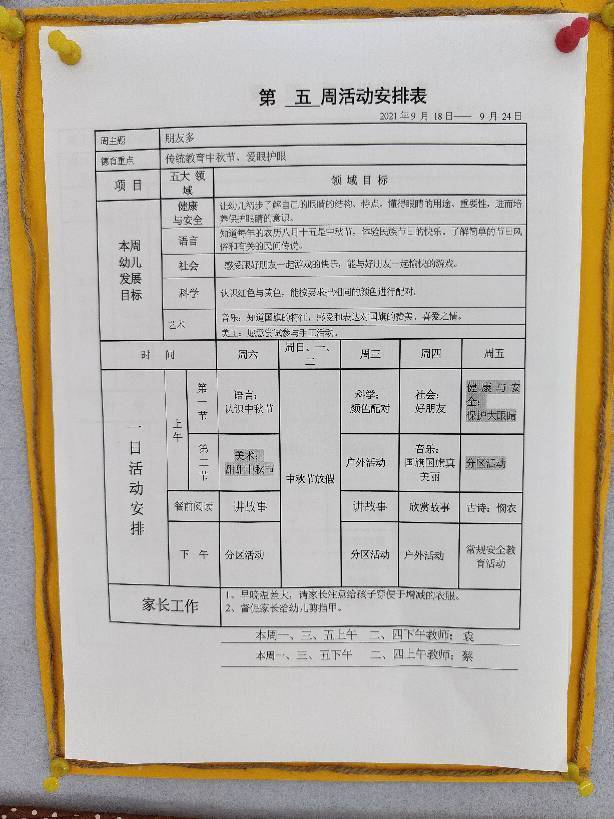 第 五 周活动安排表
2021年9月18日—— 9月24日
周主题 朋友多
德育重点 传统教育中秋节、爱眼护眼
项目 五大领域 领域目标
本周幼儿发展目标
健康与安全 让幼儿初步了解自己的眼睛的结构、特点，懂得眼睛的用途、重要性，进而培
养保护眼睛的意识。
语言 知道每年的农历八月十五是中秋节，体验民族节日的快乐。了解简单的节日风
俗和有关的民间传说。
社会 感受跟好朋友一起游戏的快乐，能与好朋友一起愉快的游戏。
科学 认识红色与黄色，能按要求把相同的颜色进行配对。
艺术 音乐：知道国旗的特征，感受和表达对国旗的赞美、喜爱之情。
美工：愿意尝试参与手工活动。
时 间 周六 周日、一、二 周三 周四 周五
一日活动安排
上午
第一节 语言：认识中秋节 科学：颜色配对 社会：好朋友 健康与安全：保护大眼睛
第二节 美术：中秋节 户外活动 音乐：国旗国旗真美丽 分区活动
中秋节放假
餐前阅读 讲故事 讲故事 欣赏故事 古诗：悯农
下 午 分区活动 分区活动 户外活动 常规安全教育活动
家长工作
1、早晚温差大，请家长注意给孩子穿便于增减的衣服。
2、督促家长给幼儿剪指甲。
本周一、三、五上午 二、四下午教师：袁
本周一、三、五下午 二、四上午教师：蔡